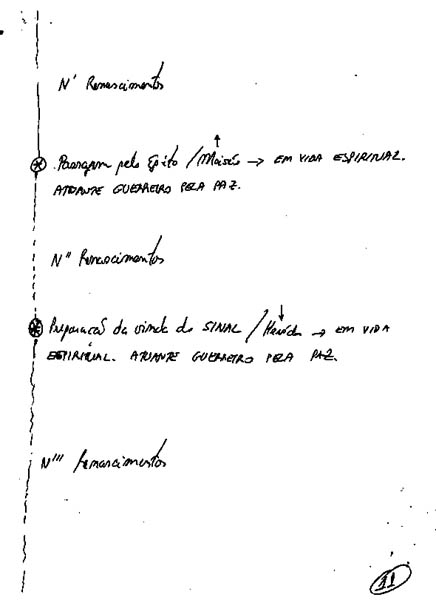 N' Renascimentos
Passagem pelo Egito / Moisés → EM VIDA ESPIRITUAL.
ATUANTE GUERREIRO PELA PAZ.
N'' Renascimentos
Preparação da vinda do SINAL / → EM VIDA
ESPIRITUAL. ATUANTE GUERREIRO PELA PAZ.
N''' Renascimentos
11